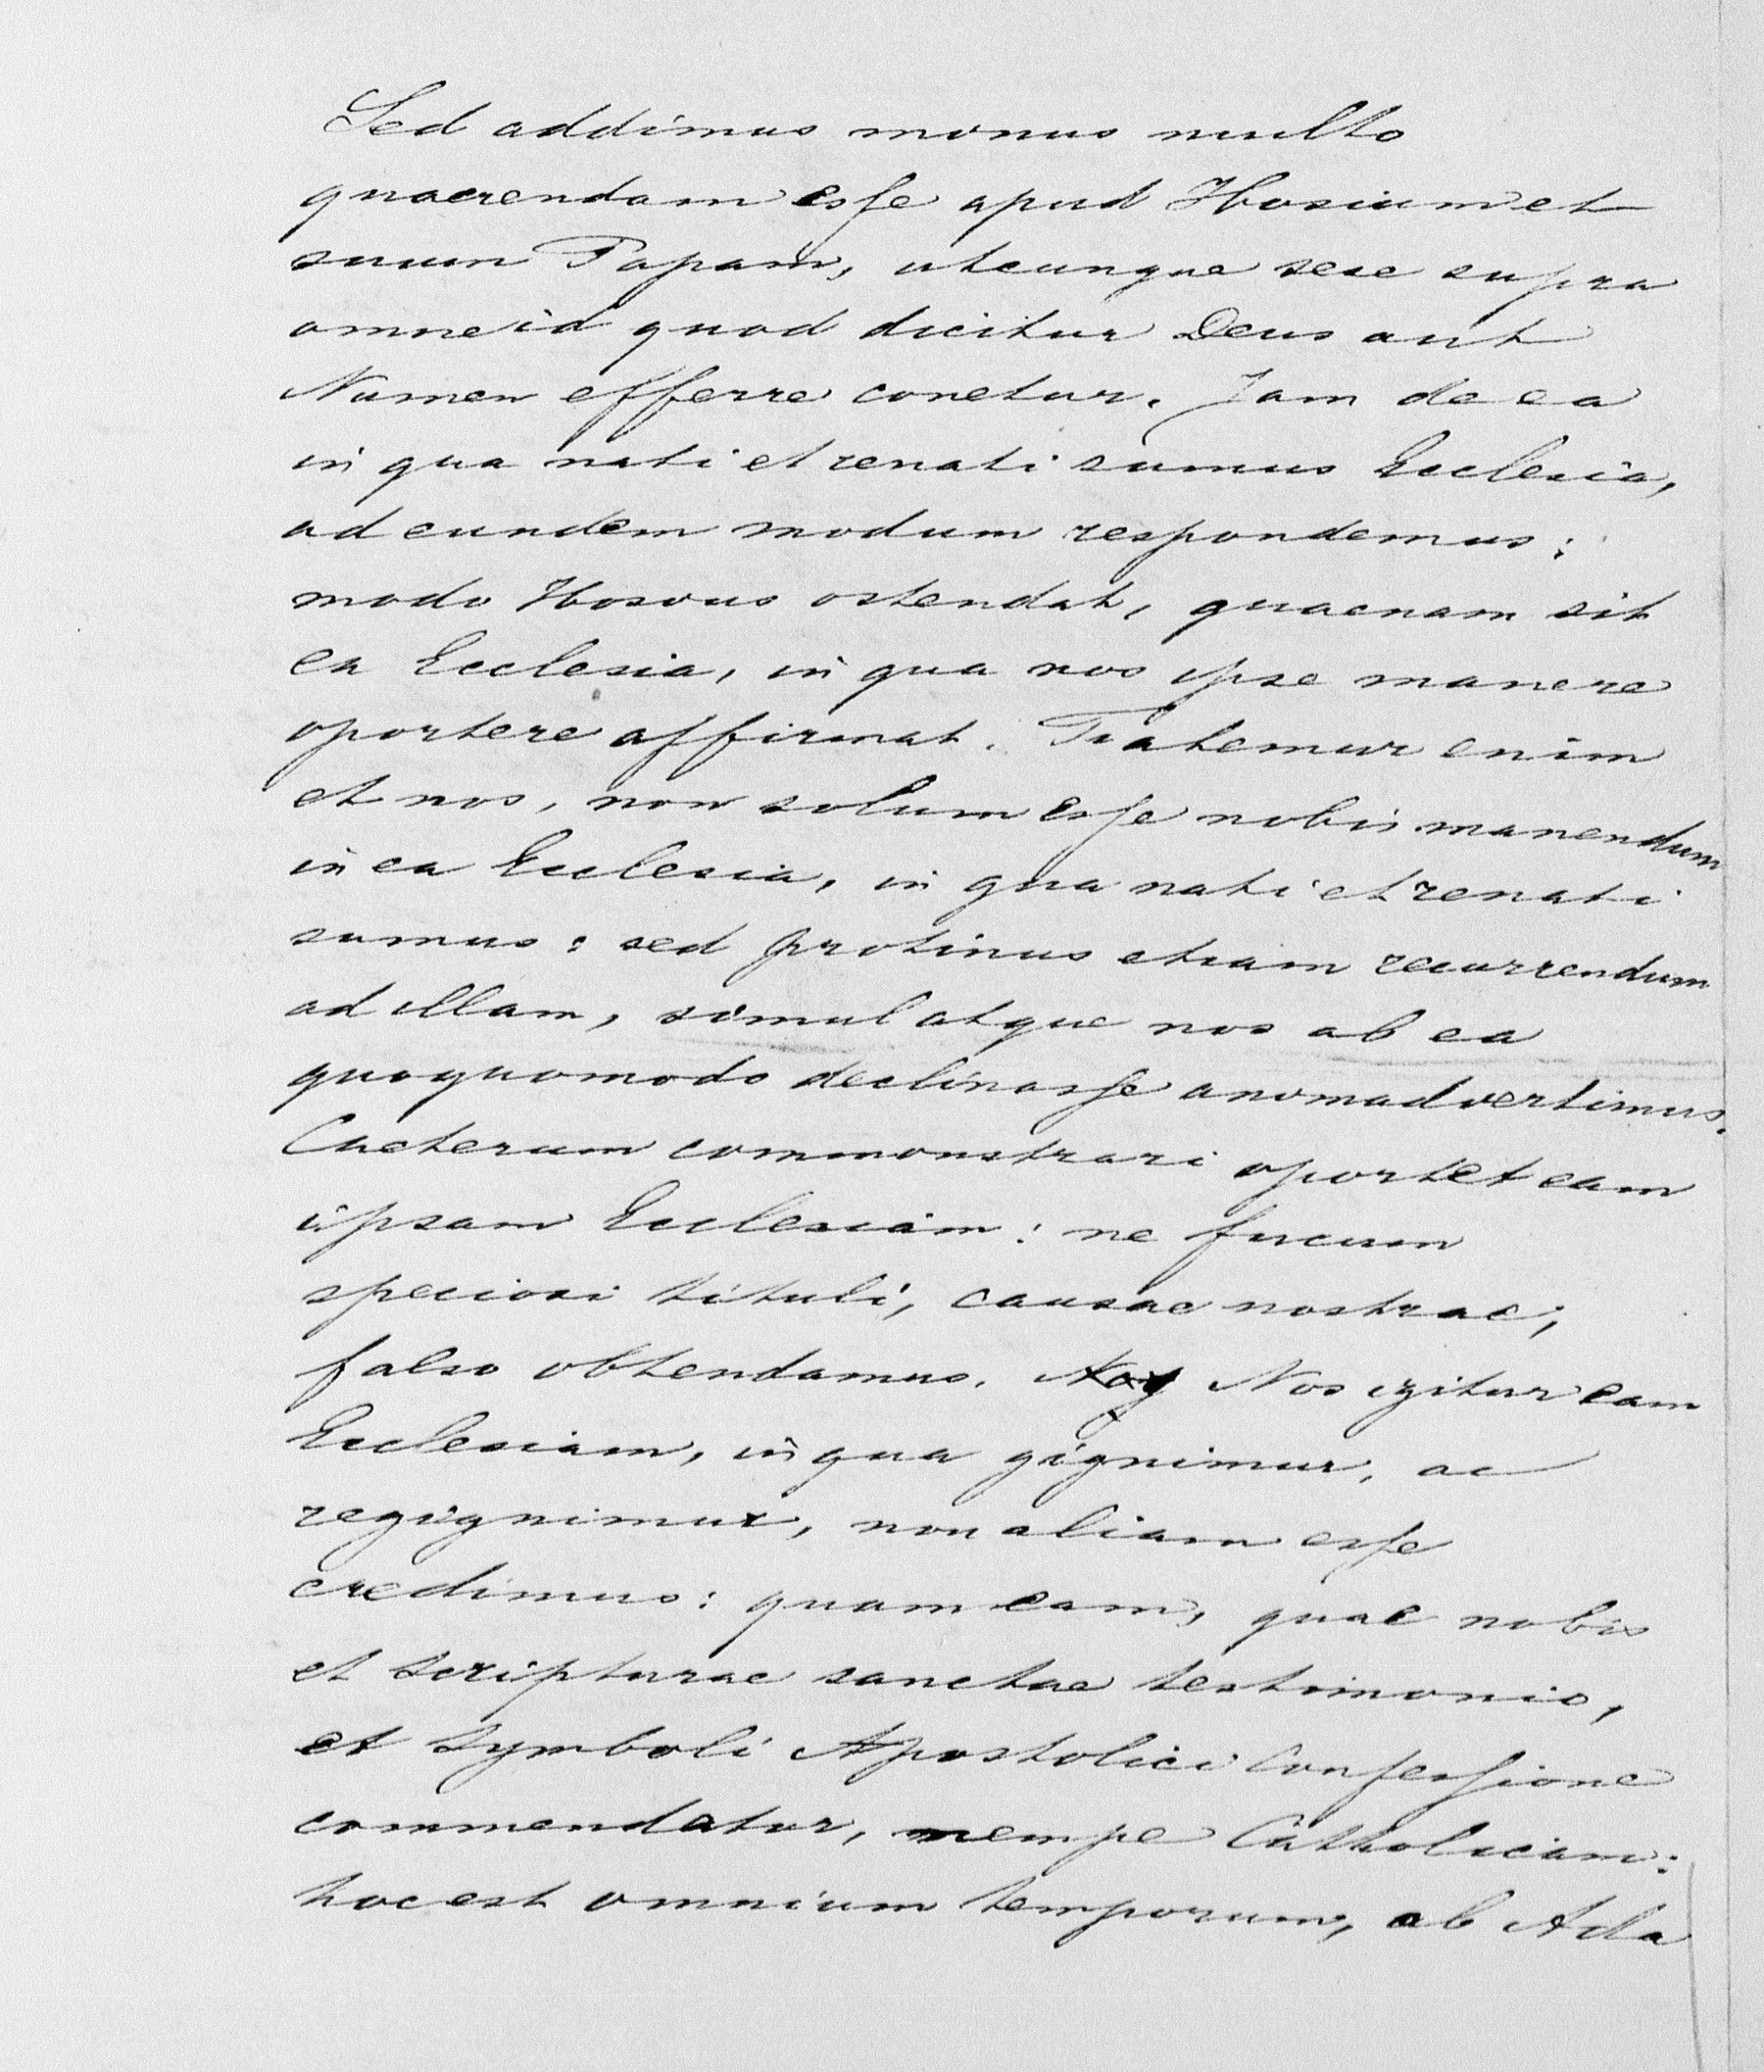 Sed addimus monus multo
quaerendam esse apud Hosium et
suum Papam, utcunque sese supra
omne id quod dicitur Deus aut
Numen efferre conetur. Jam de ea
in qua nati et renati sumus Ecclesia,
ad eundem modum respondemus:
modo Hosous ostendat, quaenam sit
ea Ecclesia, in qua nos ipse manere
oportere affirmat. Fatemur enim
et nos, non solum esse nobis manendum
in ea Ecclesia, in qua nati et renati
sumus: sed protinus etiam recurrendum
ad illam, simul atque nos ab ea
quoquomodo declinasse anomadvertimus.
Caeterum commonstrari oportet eam
ipsam Ecclesiam: ne fucum
speciosi tituli, causae nostrae,
falso obtendamus. Nos igitur eam
Ecclesiam, in qua gignimur, ac
regignimur, non aliam esse
credimus: quam eam, quae nobis
et Scripturae sanctae testimonio,
et Symboli Apostolici Confessione
commendatur, nempe Catholicam:
hoc est omnium temporum, ab Ada